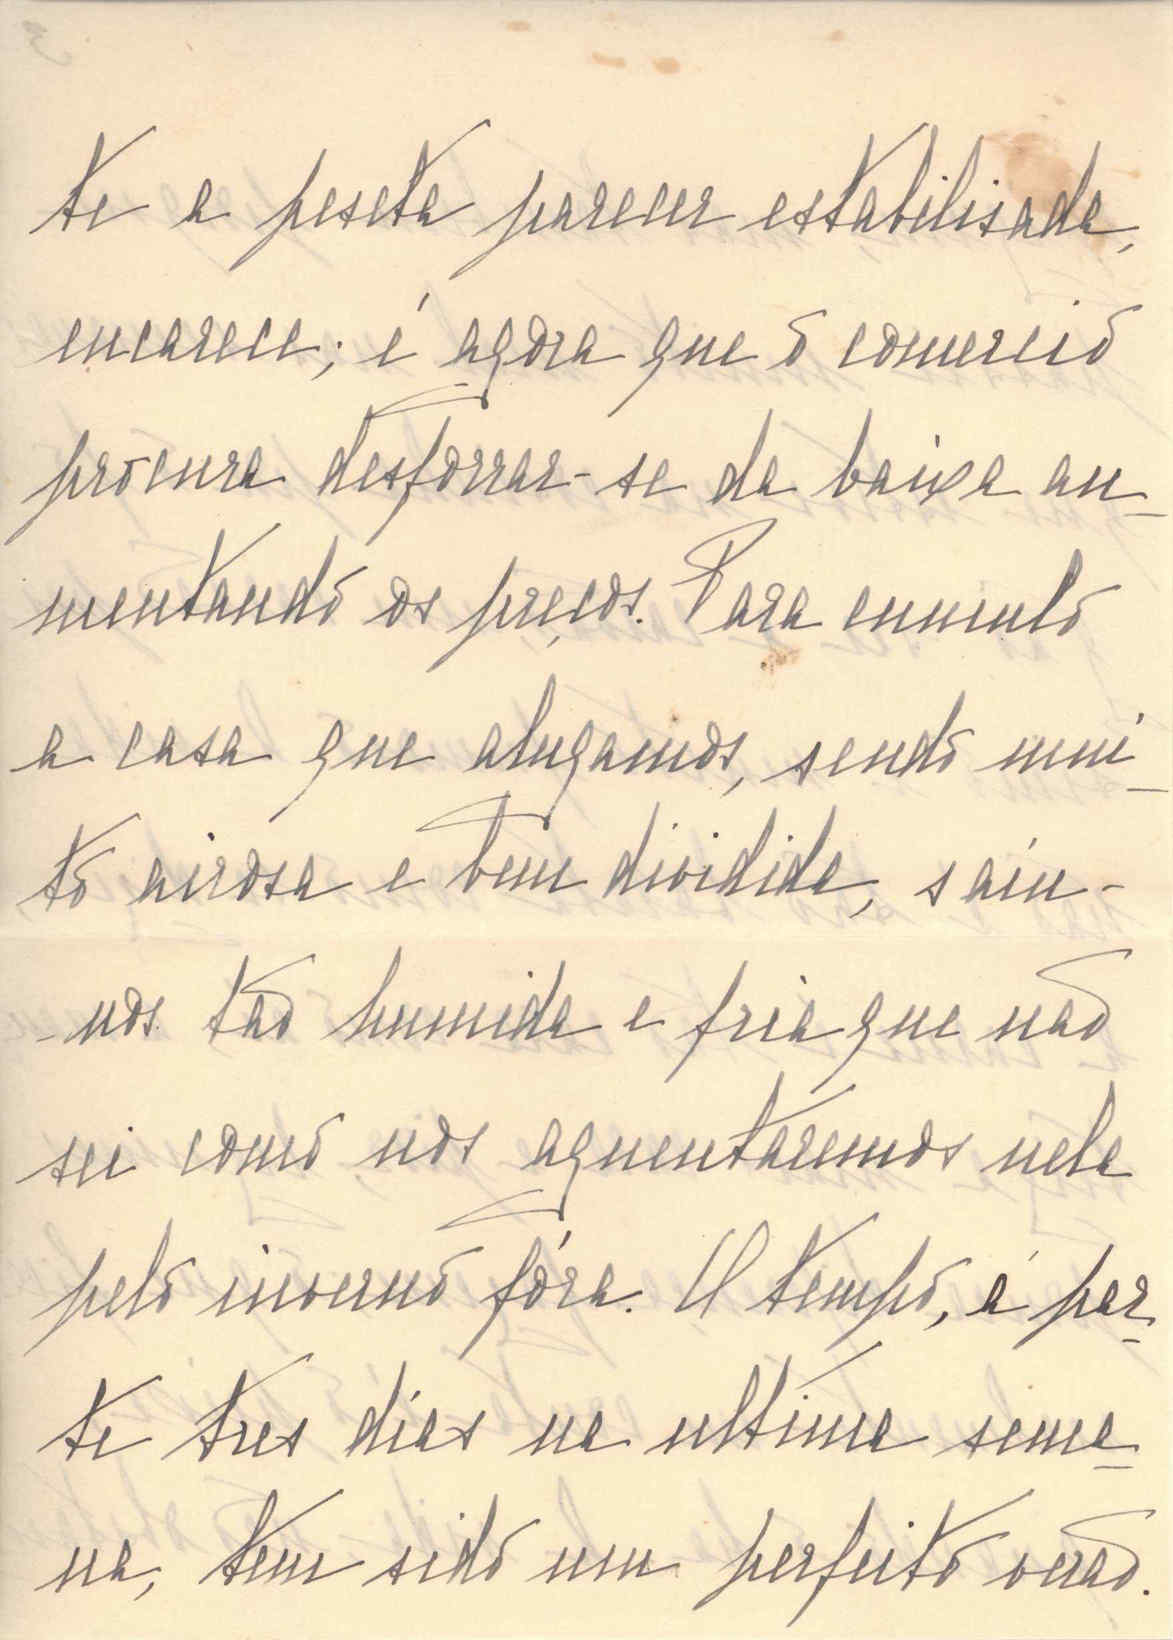 3
te a peseta parecer estabilisada,
encarece; é agora que o comercio
procura desforrar-se da baixa au-
mentando os preços. Para cumulo
a casa que alugamos, sendo mui-
to airosa e bem dividida, saiu-
-nos tão humida e fria que não
sei como nos aguentaremos nela
pelo inverno fóra. O tempo, á par-
te tres dias na ultima sema-
na, tem sido um perfeito verão.